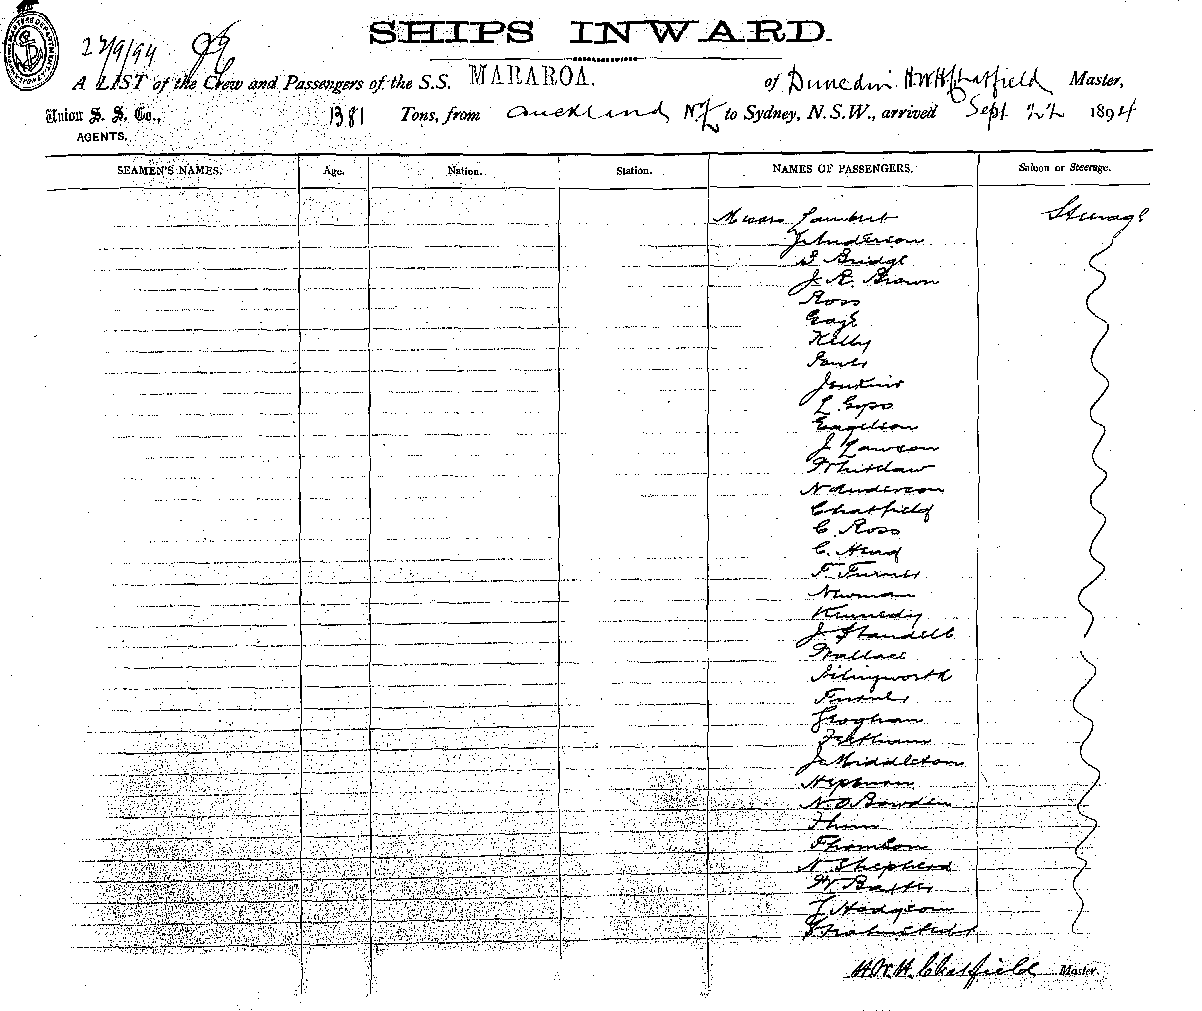 SHIPS INWARD.
27/9/94
A LIST of the Crew and Passengers of the S.S. MARAROA. of Dunedin H.W.H. Chatfield Master,
Union S. S. Co., 1381 Tons, from Auckland NZ to Sydney, N.S.W., arrived Sept 22 1894
AGENTS.
SEAMEN'S NAMES. Age. Nation. Station. NAMES OF PASSENGERS. Saloon or Steerage.
Messrs Lambert Steerage
J Anderson
Bridge
J. R. Brown
Ross
Kelly
Jenkins
L. Epps
J. Lawson
Whitelaw
N Anderson
Chatfield
C. Ross
C. Head
T. Turner
Newman
Kennedy
Wallace
Turner
Feltham
J. Middleton
N. O Bowden
Thomson
N. Shepherd
W. Baxter
Hodgson
H.W.H. Chatfield Master.